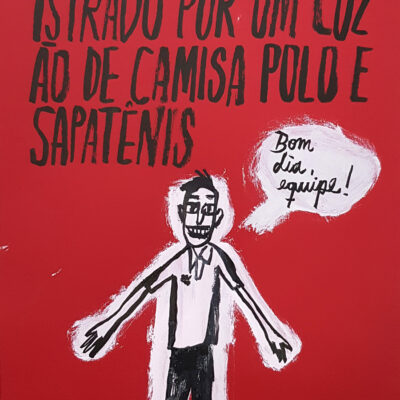 ISTRADO POR UM CUZ
ÃO DE CAMISA POLO E
SAPATÊNIS
Bom
dia,
equipe!